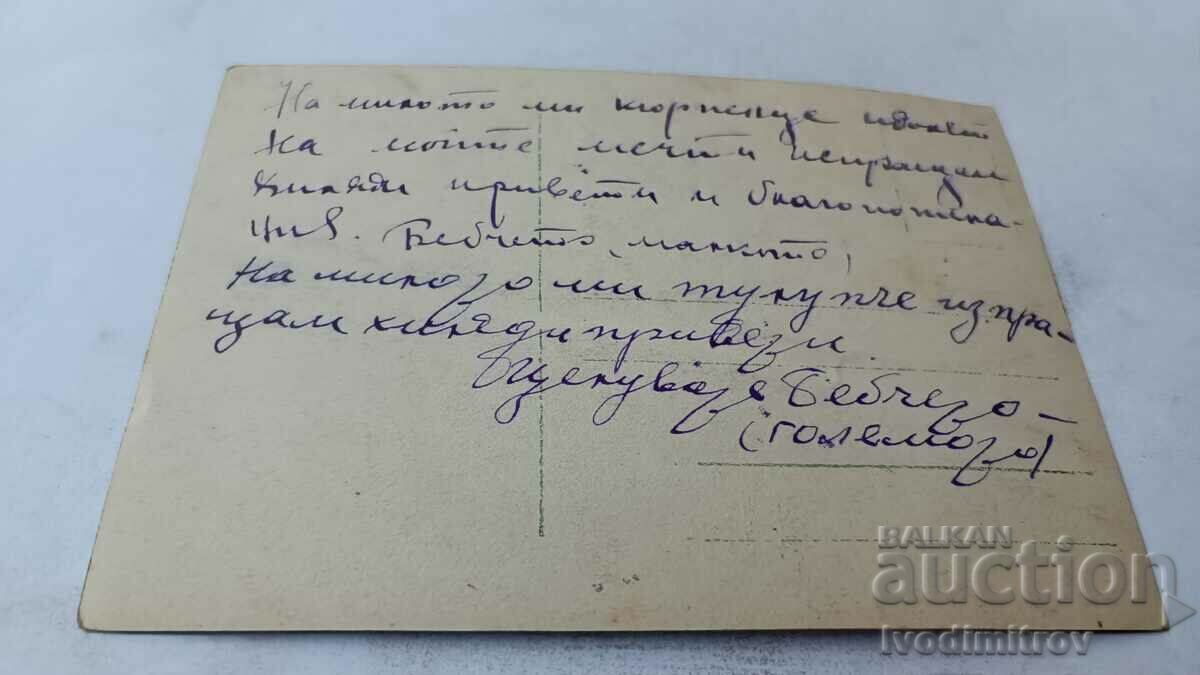 На милото ми кюркенце идолът
на моите мечти испращам
хиляди привети и благопожела-
ния. Бебчето, малкото,
На милозо ми тулупче изпра-
щам хиляди привези.
Бебчезо -
(големозо)
BALKAN
auction
Ivodimitrov